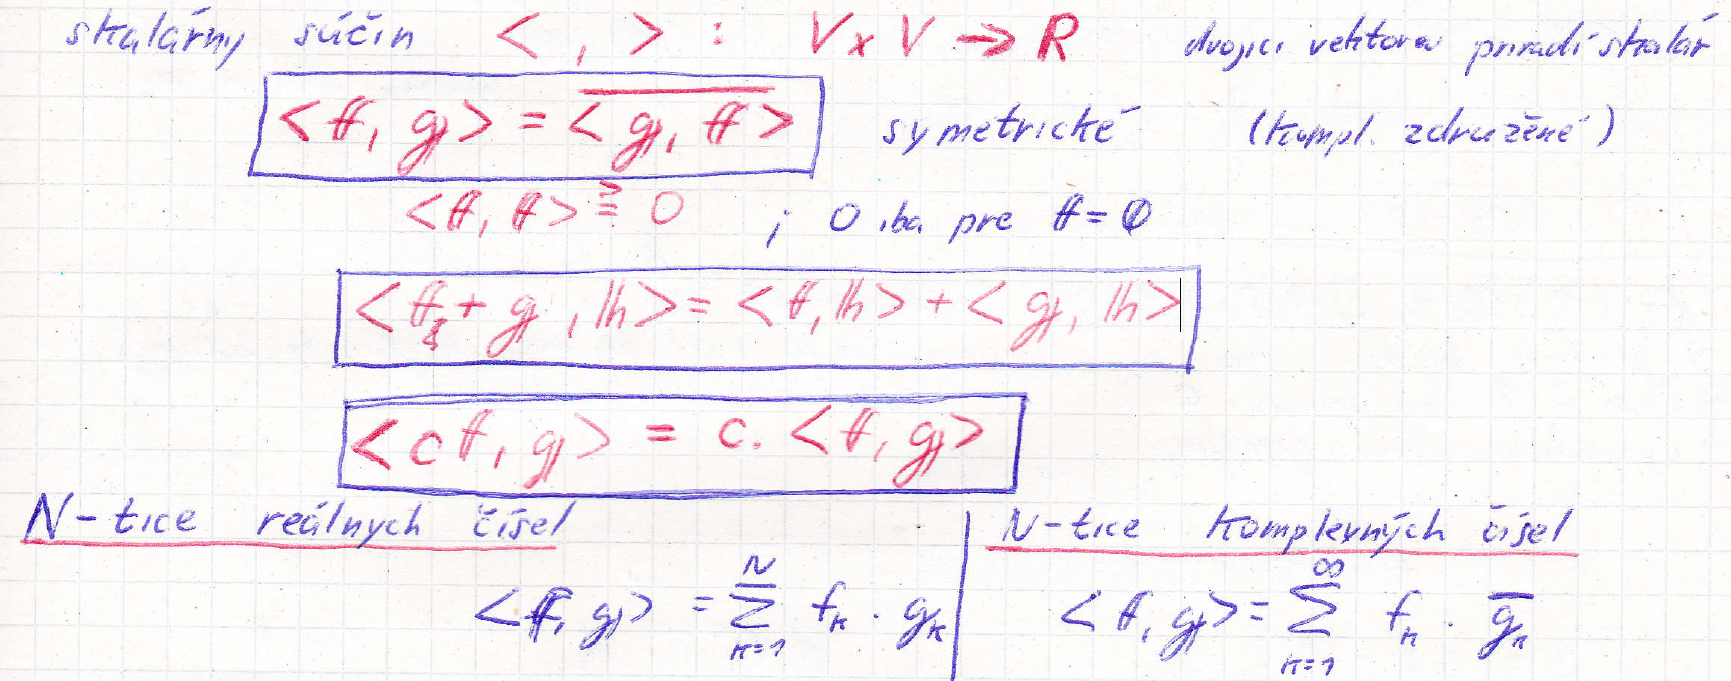 skalárny súčin < , > : V x V → R dvojici vektorov priradí skalár
<f, g> = \overline{<g, f>} symetrické (kompl. združéné)
<f, f> ≧ 0 ; 0 iba pre f = 0
<f + g, h> = <f, h> + <g, h>
<c f, g> = c. <f, g>
N-tice reálnych čísel
N-tice komplexných čísel
<f, g> = \sum_{k=1}^{N} f_k . g_k
<f, g> = \sum_{k=1}^{∞} f_k . \overline{g_k}